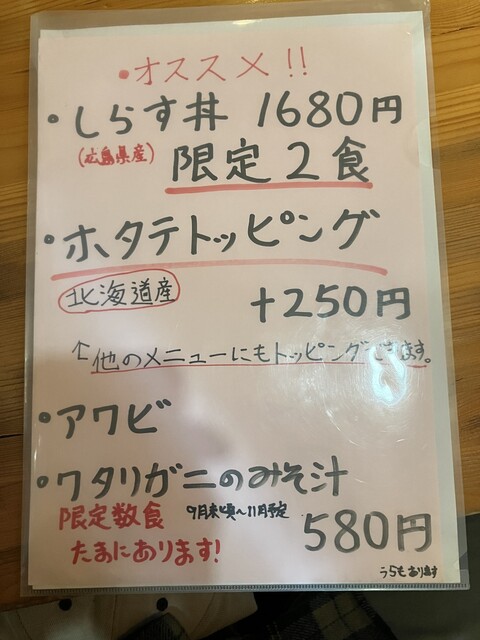 ・オススメ!!
・しらす丼 1680円
(広島県産) 限定2食
・ホタテトッピング
北海道産 +250円
↑他のメニューにもトッピングできます。
・アワビ
・ワタリガニのみそ汁
限定数食 9月末頃〜11月予定 580円
たまにあります!
うらもあります